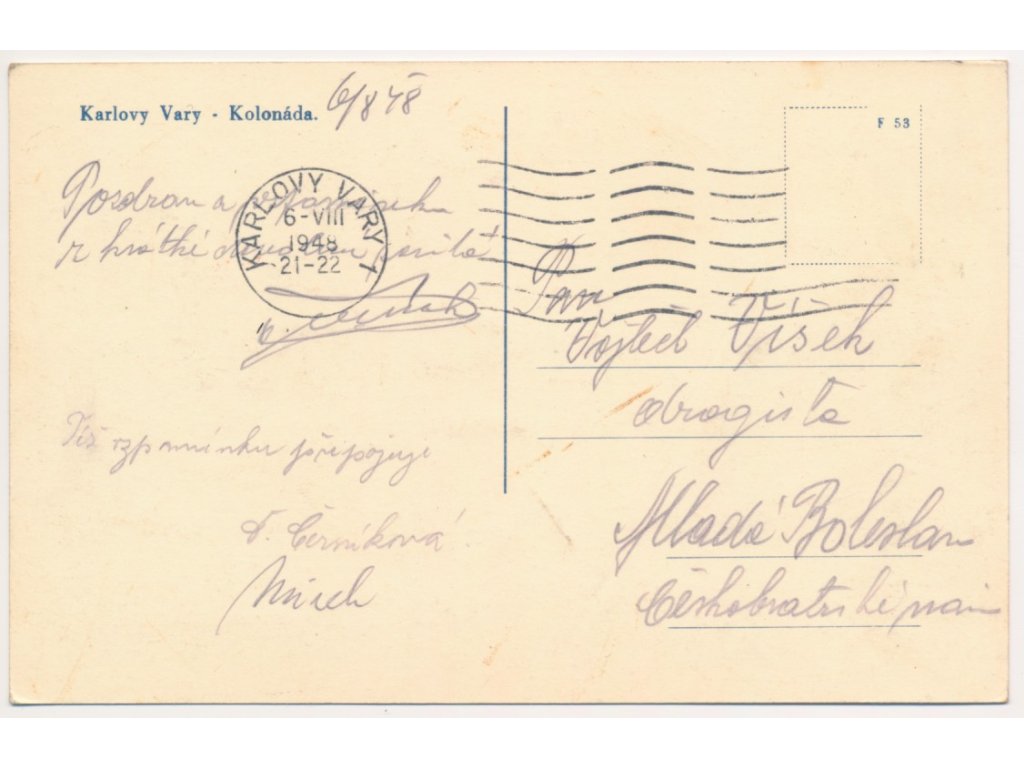 Karlovy Vary · Kolonáda.
6/8 48
F 53
KARLOVY VARY 1
6-VIII
1948
21-22
Pozdrav a vzpomínku
z krátké
Též vzpomínku připojuje
Černíková
Pan
Vojtěch Víšek
drogista
Mladá Boleslav
Českobratrské nám